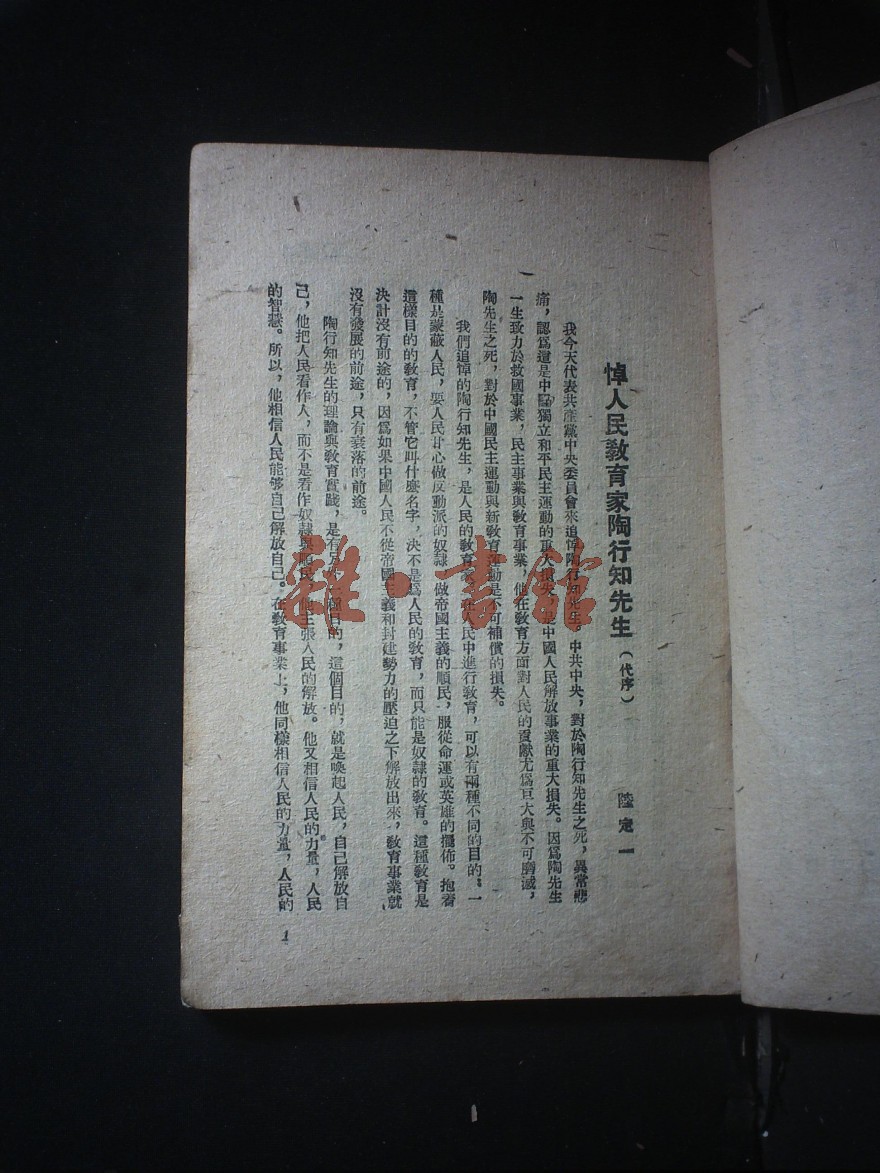 悼人民教育家陶行知先生（代序）
陸定一
我今天代表共產黨中央委員會來追悼陶行知先生。中共中央，對於陶行知先生之死，異常悲
痛，認爲這是中國獨立和平民主運動的重大損失，是中國人民解放事業的重大損失。因爲陶先生
一生致力於救國事業，民主事業與教育事業，他在教育方面對人民的貢獻尤爲巨大與不可磨滅，
陶先生之死，對於中國民主運動與新教育運動是不可補償的損失。
我們追悼的陶行知先生，是人民的教育家。在人民中進行教育，可以有兩種不同的目的。一
種是蒙蔽人民，要人民甘心做反動派的奴隸，做帝國主義的順民，服從命運或英雄的擺佈。抱着
這樣目的的教育，不管它叫什麼名字，決不是爲人民的教育，而只能是奴隸的教育。這種教育是
決計沒有前途的，因爲如果中國人民不從帝國主義和封建勢力的壓迫之下解放出來，教育事業就
沒有發展的前途，只有衰落的前途。
陶行知先生的理論與教育實踐，是有另外一種目的，這個目的，就是喚起人民，自己解放自
己，他把人民看作人，而不是看作奴隸與順民，他主張人民的解放。他又相信人民的力量，人民
的智慧。所以，他相信人民能够自己解放自己。在教育事業上，他同樣相信人民的力量，人民的
1
雜·書館